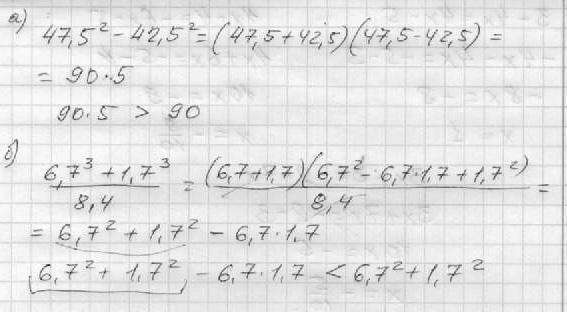 а)
47,5² - 42,5² = (47,5+42,5)(47,5-42,5) =
= 90·5
90·5 > 90
б)
(6,7³ + 1,7³)/8,4 = (6,7+1,7)(6,7² - 6,7·1,7 + 1,7²)/8,4 =
= 6,7² + 1,7² - 6,7·1,7
6,7² + 1,7² - 6,7·1,7 < 6,7² + 1,7²